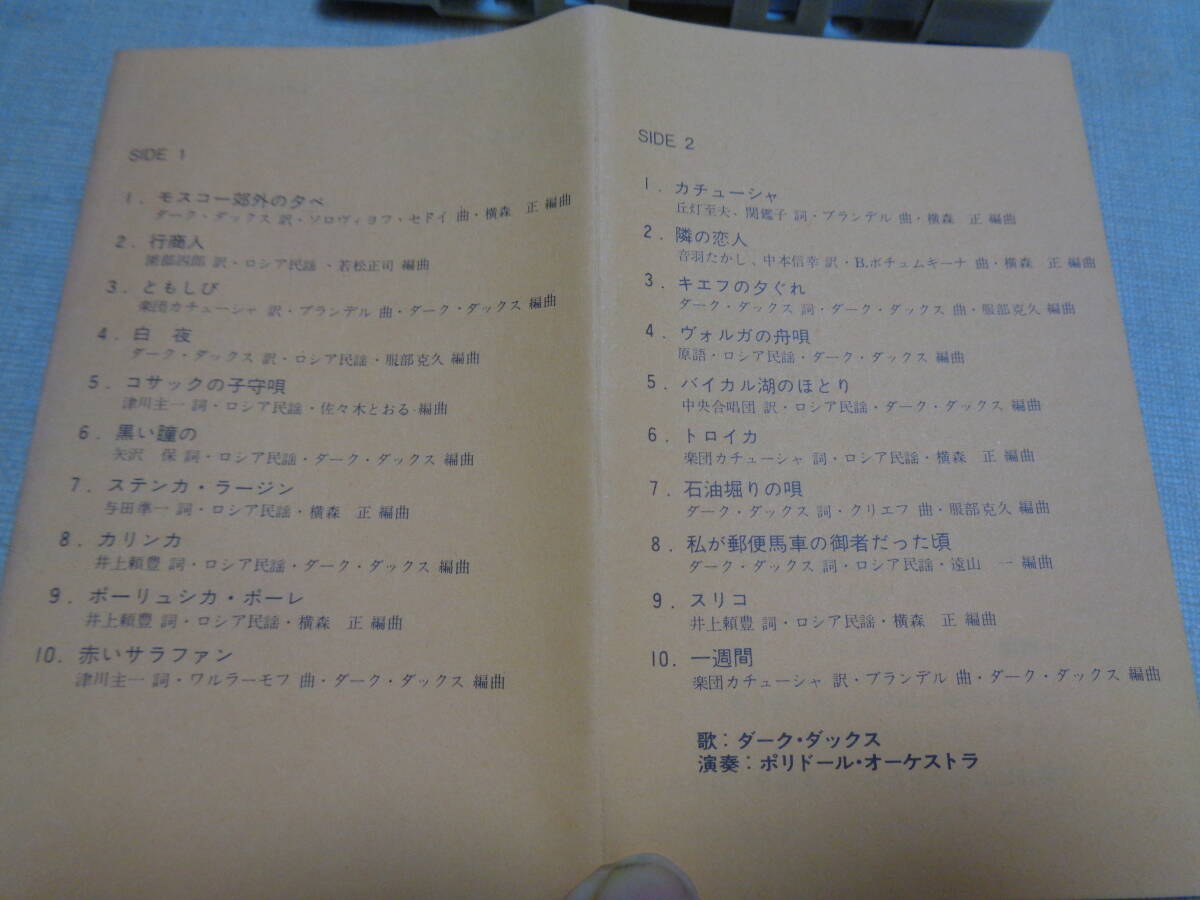 SIDE 1
1. モスコー郊外の夕べ
ダーク・ダックス 訳・ソロヴィヨフ・セドイ 曲・横森 正 編曲
2. 行商人
楽部四郎 訳・ロシア民謡・若松正司 編曲
3. ともしび
楽団カチューシャ 訳・ブランデル 曲・ダーク・ダックス 編曲
4. 白 夜
ダーク・ダックス 訳・ロシア民謡・服部克久 編曲
5. コサックの子守唄
津川主一 詞・ロシア民謡・佐々木とおる・編曲
6. 黒い瞳の
矢沢 保 詞・ロシア民謡・ダーク・ダックス 編曲
7. ステンカ・ラージン
与田準一 詞・ロシア民謡・横森 正 編曲
8. カリンカ
井上頼豊 詞・ロシア民謡・ダーク・ダックス 編曲
9. ポーリュシカ・ポーレ
井上頼豊 詞・ロシア民謡・横森 正 編曲
10. 赤いサラファン
津川主一 詞・ワルラーモフ 曲・ダーク・ダックス 編曲
SIDE 2
1. カチューシャ
丘灯至夫、関鑑子 詞・ブランデル 曲・横森 正 編曲
2. 隣の恋人
音羽たかし、中本信幸 訳・B.ポチュムキーナ 曲・横森 正 編曲
3. キエフの夕ぐれ
ダーク・ダックス 詞・ダーク・ダックス 曲・服部克久 編曲
4. ヴォルガの舟唄
原語・ロシア民謡・ダーク・ダックス 編曲
5. バイカル湖のほとり
中央合唱団 訳・ロシア民謡・ダーク・ダックス 編曲
6. トロイカ
楽団カチューシャ 詞・ロシア民謡・横森 正 編曲
7. 石油堀りの唄
ダーク・ダックス 詞・クリエフ 曲・服部克久 編曲
8. 私が郵便馬車の御者だった頃
ダーク・ダックス 詞・ロシア民謡・遠山 一 編曲
9. スリコ
井上頼豊 詞・ロシア民謡・横森 正 編曲
10. 一週間
楽団カチューシャ 訳・ブランデル 曲・ダーク・ダックス 編曲
歌：ダーク・ダックス
演奏：ポリドール・オーケストラ